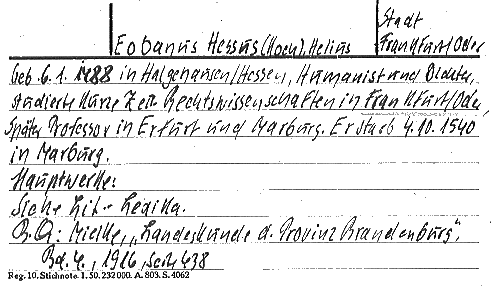 Stadt
Eobanus Hessus (Koch), Helius Frankfurt/Oder
geb. 6.1.1488 in Halgehausen/Hessen, Humanist und Dichter,
studierte kurze Zeit Rechtswissenschaften in Frankfurt/Oder,
später Professor in Erfurt und Marburg. Er starb 4.10.1540
in Marburg.
Hauptwerke:
Siehe Lit.-Lexika.
B.Q.: Mielke, „Landeskunde d. Provinz Brandenburg“,
Bd. 4, 1916, Seite 438
Reg. 10. Stichnote. I. 50. 232000. A. 803. S. 4062